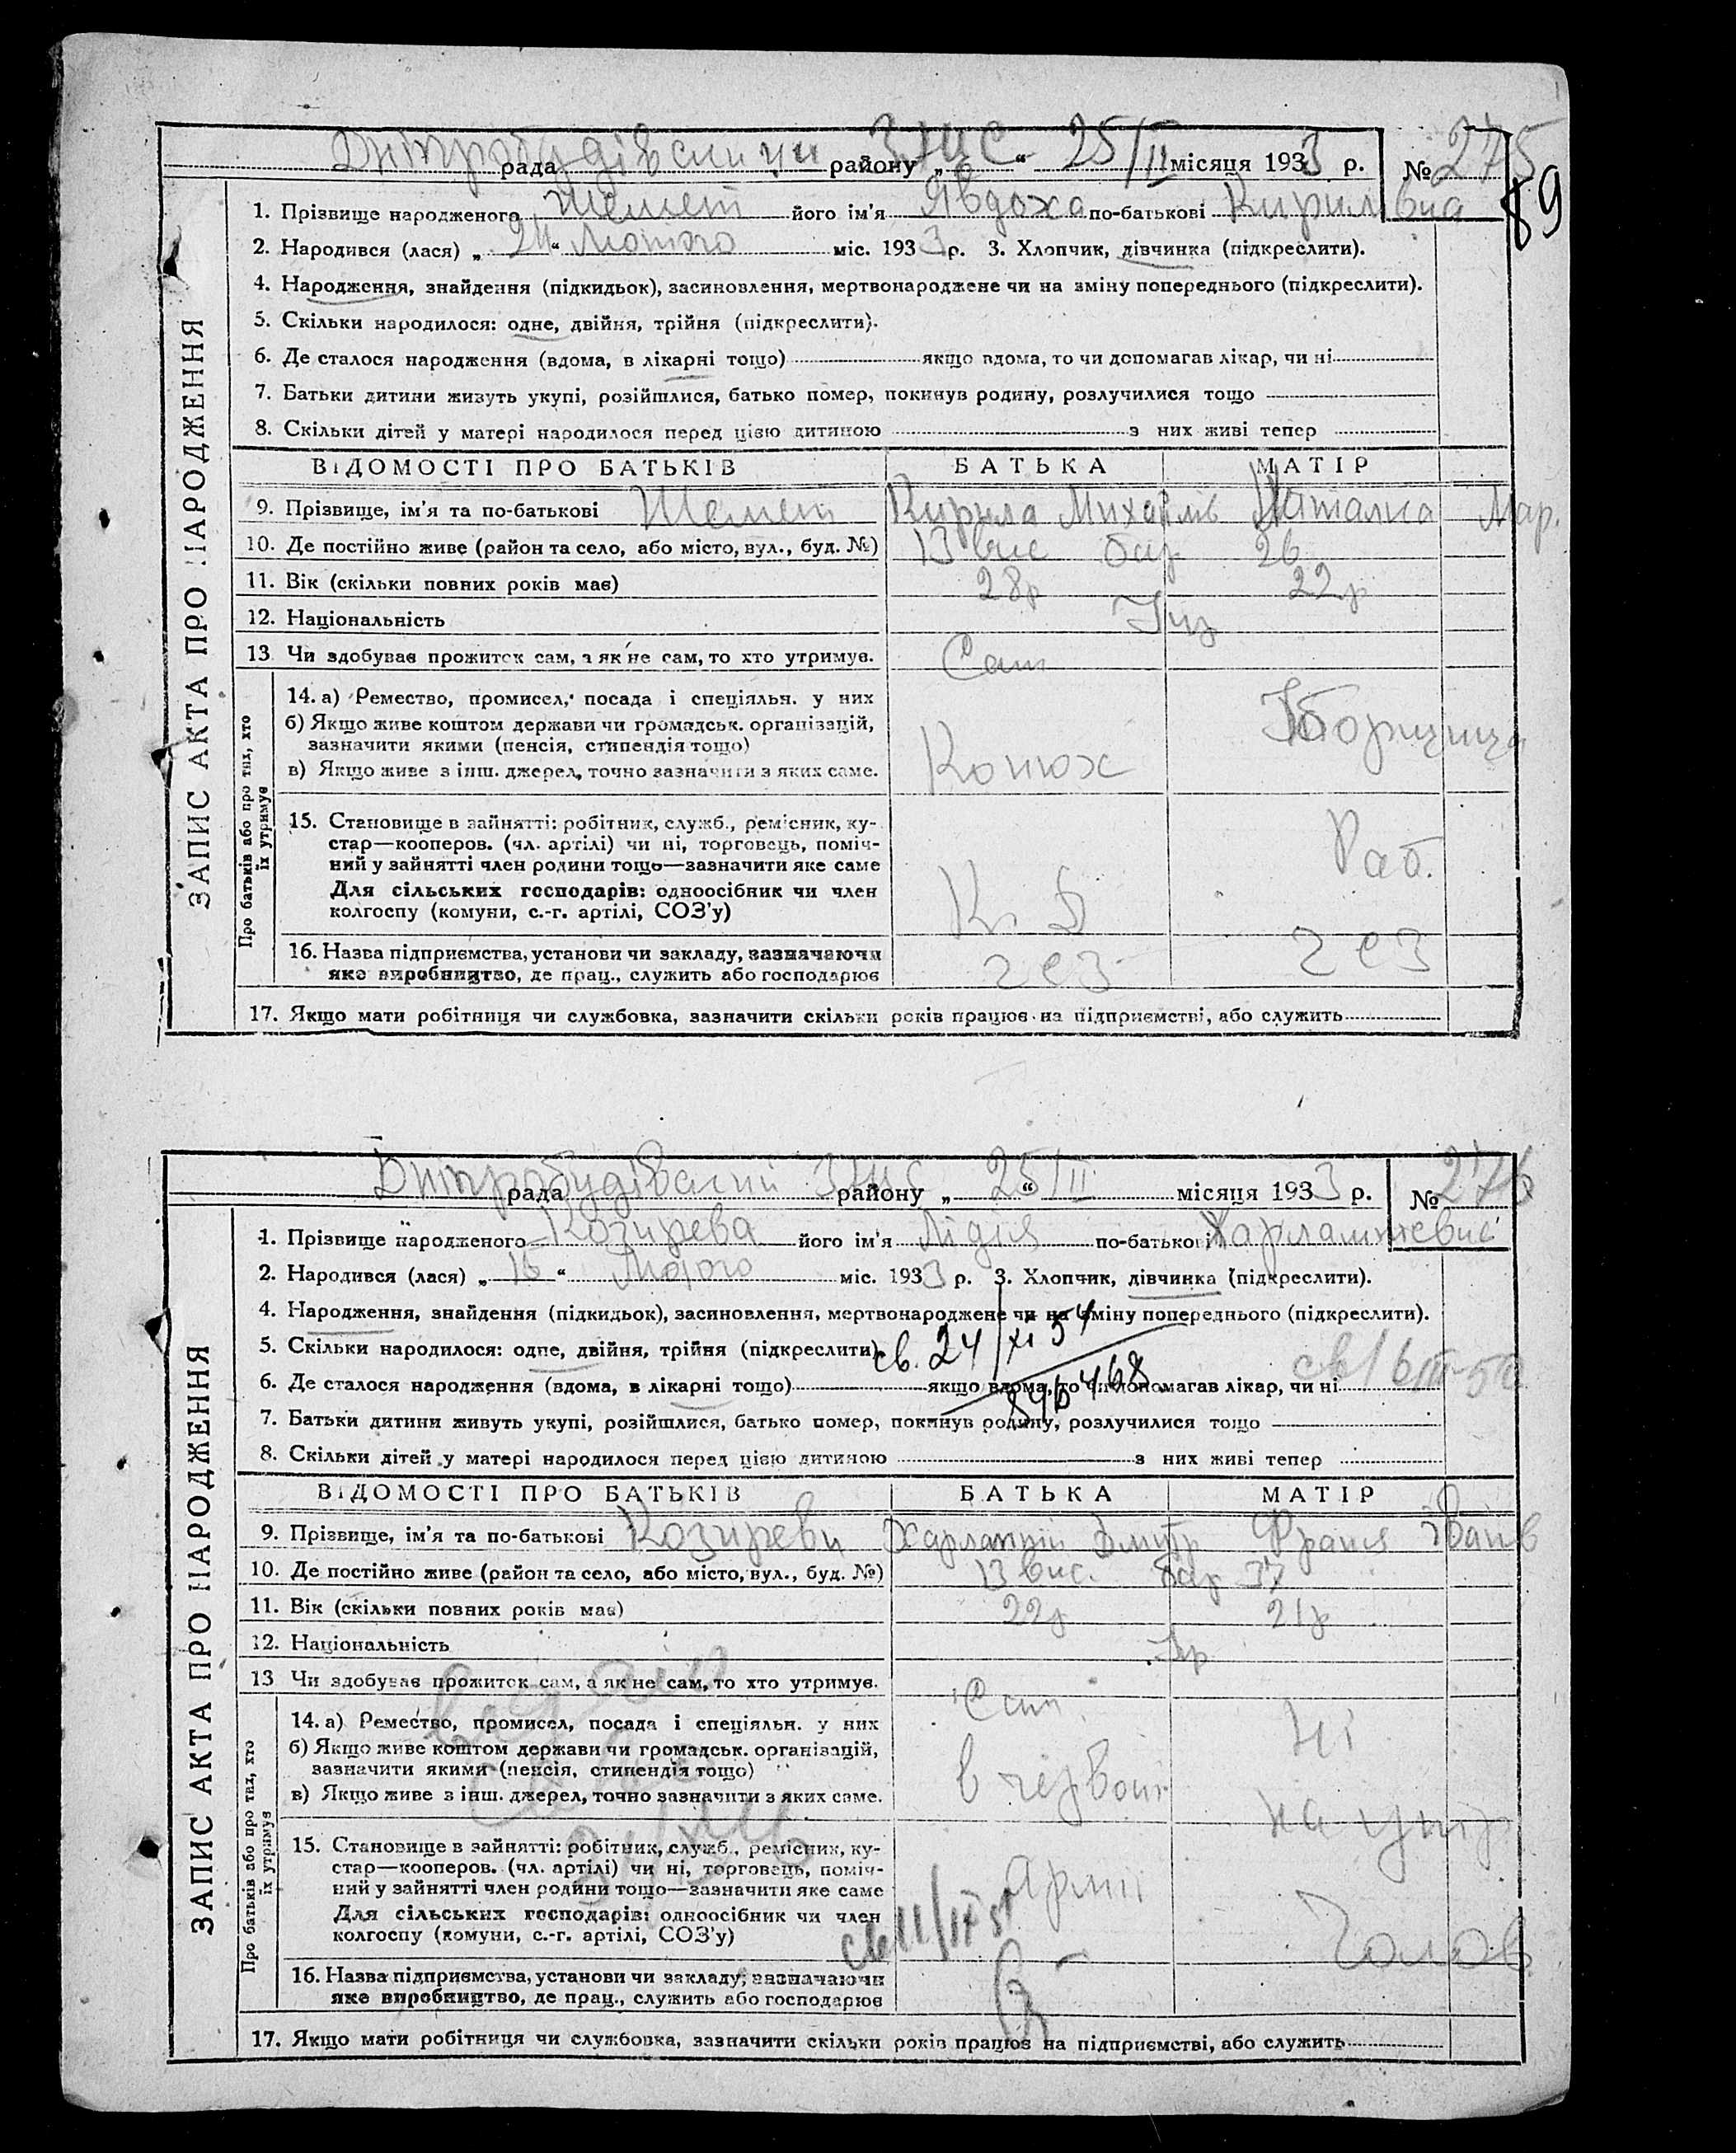 Дніпробудівський рада ЗАГС району „ “ 25/II місяця 1933 р. № 275
89
ЗАПИС АКТА ПРО НАРОДЖЕННЯ
1. Прізвище народженого Шемет його ім’я Явдоха по-батькові Кирилівна
2. Народився (лася) „ 24 “ Лютого міс. 1933 р. 3. Хлопчик, дівчинка (підкреслити).
4. Народження, знайдення (підкидьок), засиновлення, мертвонароджене чи на зміну попереднього (підкреслити).
5. Скільки народилося: одне, двійня, трійня (підкреслити).
6. Де сталося народження (вдома, в лікарні тощо) якщо вдома, то чи допомагав лікар, чи ні
7. Батьки дитини живуть укупі, розійшлися, батько помер, покинув родину, розлучилися тощо
8. Скільки дітей у матері народилося перед цією дитиною з них живі тепер
ВІДОМОСТІ ПРО БАТЬКІВ БАТЬКА МАТІР
9. Прізвище, ім’я та по-батькові Шемет Кирила Михайлів Наталка Мар.
10. Де постійно живе (район та село, або місто, вул., буд. №) 13 вис бар 26
11. Вік (скільки повних років має) 28р 22р
12. Національність
13 Чи здобуває прожиток сам, а як не сам, то хто утримує. Сам
Про батьків або про тих, хто їх утримує
14. а) Ремество, промисел, посада і спеціяльн. у них
б) Якщо живе коштом держави чи громадськ. організацій,
зазначити якими (пенсія, стипендія тощо)
в) Якщо живе з інш. джерел, точно зазначити з яких саме. Конюх
15. Становище в зайнятті: робітник, служб., ремісник, ку-
стар—кооперов. (чл. артілі) чи ні, торговець, поміч-
ний у зайнятті член родини тощо—зазначити яке саме Раб.
Для сільських господарів: одноосібник чи член
колгоспу (комуни, с.-г. артілі, СОЗ’у)
16. Назва підприємства, установи чи закладу, зазначаючи
яке виробництво, де прац., служить або господарює гез гез
17. Якщо мати робітниця чи службовка, зазначити скільки років працює на підприємстві, або служить
Дніпробудівський рада ЗАГС району „ “ 25/II місяця 1933 р. № 276
ЗАПИС АКТА ПРО НАРОДЖЕННЯ
1. Прізвище народженого Козирева його ім’я Лідія по-батькові
2. Народився (лася) „ 15 “ Лютого міс. 1933 р. 3. Хлопчик, дівчинка (підкреслити).
4. Народження, знайдення (підкидьок), засиновлення, мертвонароджене чи на зміну попереднього (підкреслити).
5. Скільки народилося: одне, двійня, трійня (підкреслити). св. 24/XI 54
6. Де сталося народження (вдома, в лікарні тощо) якщо вдома, то чи допомагав лікар, чи ні
7. Батьки дитини живуть укупі, розійшлися, батько помер, покинув родину, розлучилися тощо
8. Скільки дітей у матері народилося перед цією дитиною з них живі тепер
ВІДОМОСТІ ПРО БАТЬКІВ БАТЬКА МАТІР
9. Прізвище, ім’я та по-батькові Козиреви Харлампій Дмитр
10. Де постійно живе (район та село, або місто, вул., буд. №) 13 вис. бар 37
11. Вік (скільки повних років має) 22р 21р
12. Національність
13 Чи здобуває прожиток сам, а як не сам, то хто утримує. Сам. Ні
Про батьків або про тих, хто їх утримує
14. а) Ремество, промисел, посада і спеціяльн. у них
б) Якщо живе коштом держави чи громадськ. організацій,
зазначити якими (пенсія, стипендія тощо)
в) Якщо живе з інш. джерел, точно зазначити з яких саме. в червон на утр
15. Становище в зайнятті: робітник, служб., ремісник, ку-
стар—кооперов. (чл. артілі) чи ні, торговець, поміч-
ний у зайнятті член родини тощо—зазначити яке саме армії
Для сільських господарів: одноосібник чи член
колгоспу (комуни, с.-г. артілі, СОЗ’у) Чолов
16. Назва підприємства, установи чи закладу, зазначаючи
яке виробництво, де прац., служить або господарює
17. Якщо мати робітниця чи службовка, зазначити скільки років працює на підприємстві, або служить